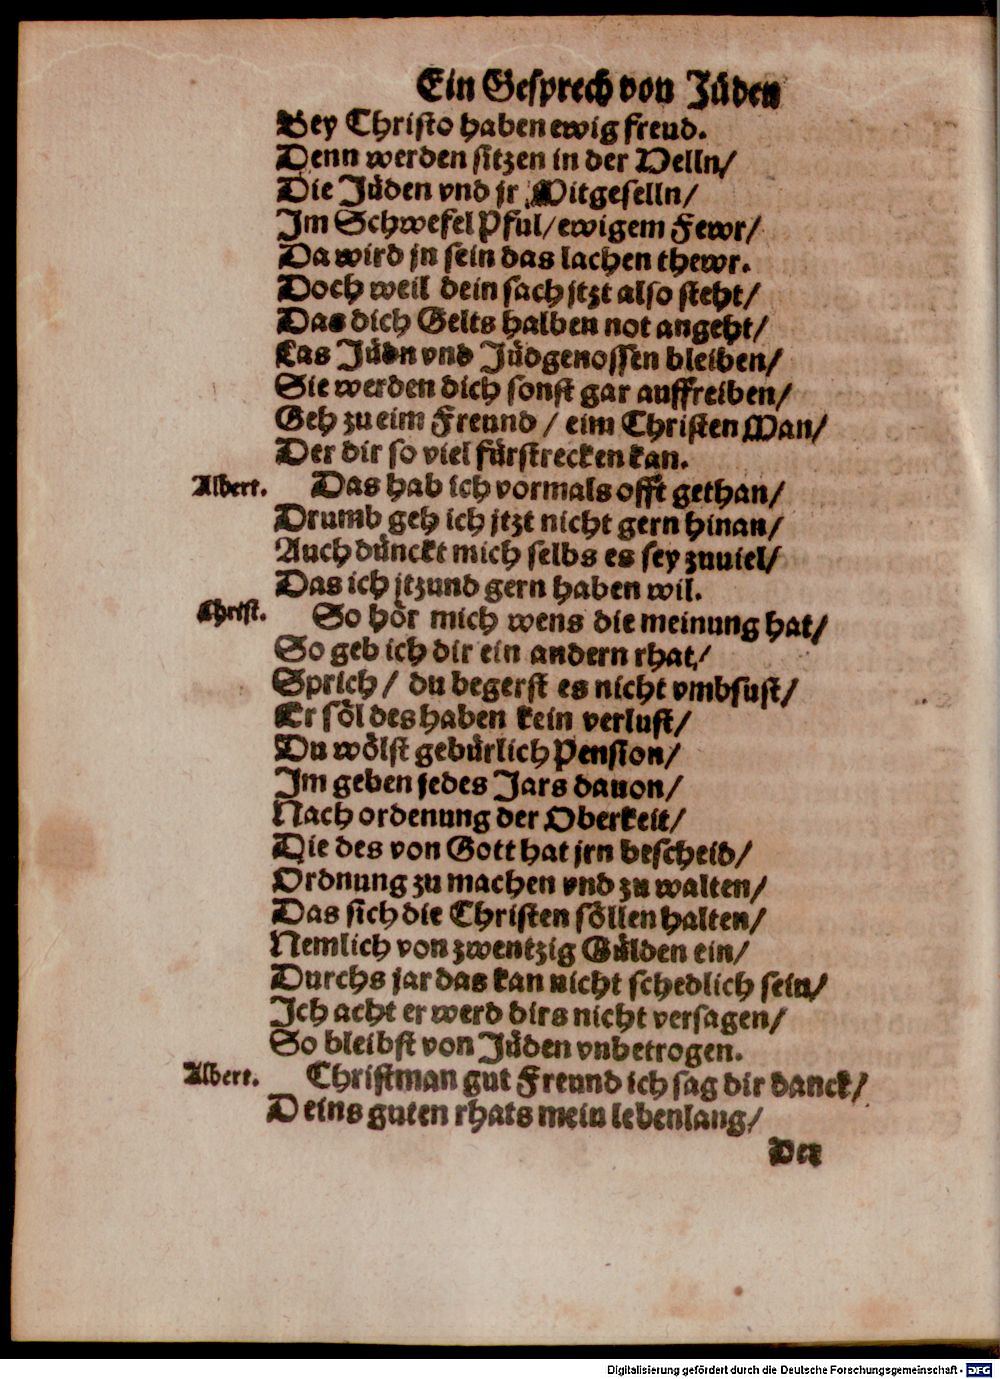 Ein Gesprech von Jüden
Bey Christo haben ewig freud.
Denn werden sitzen in der Helln/
Die Jüden vnd jr Mitgeselln/
Im Schwefel Pful/ewigem Fewr/
Da wird jn sein das lachen thewr.
Doch weil dein sach jtzt also steht/
Das dich Gelts halben not angeht/
Las Jüdn vnd Jüdgenossen bleiben/
Sie werden dich sonst gar auffreiben/
Geh zu eim Freund / eim Christen Man/
Der dir so viel fürstrecken kan.
Albert. Das hab ich vormals offt gethan/
Drumb geh ich jtzt nicht gern hinan/
Auch dünckt mich selbs es sey zuuiel/
Das ich jtzund gern haben wil.
Christ. So hör mich wens die meinung hat/
So geb ich dir ein andern rhat/
Sprich / du begerst es nicht vmbsust/
Er söl des haben kein verlust/
Du wölst gebürlich Pension/
Im geben jedes Jars dauon/
Nach ordenung der Oberkeit/
Die des von Gott hat jrn bescheid/
Ordnung zu machen vnd zu walten/
Das sich die Christen söllen halten/
Nemlich von zwentzig Gülden ein/
Durchs jar das kan nicht schedlich sein/
Ich acht er werd dirs nicht versagen/
So bleibst von Jüden vnbetrogen.
Albert. Christman gut Freund ich sag dir danck/
Deins guten rhats mein lebenlang/
Der
Digitalisierung gefördert durch die Deutsche Forschungsgemeinschaft - DFG